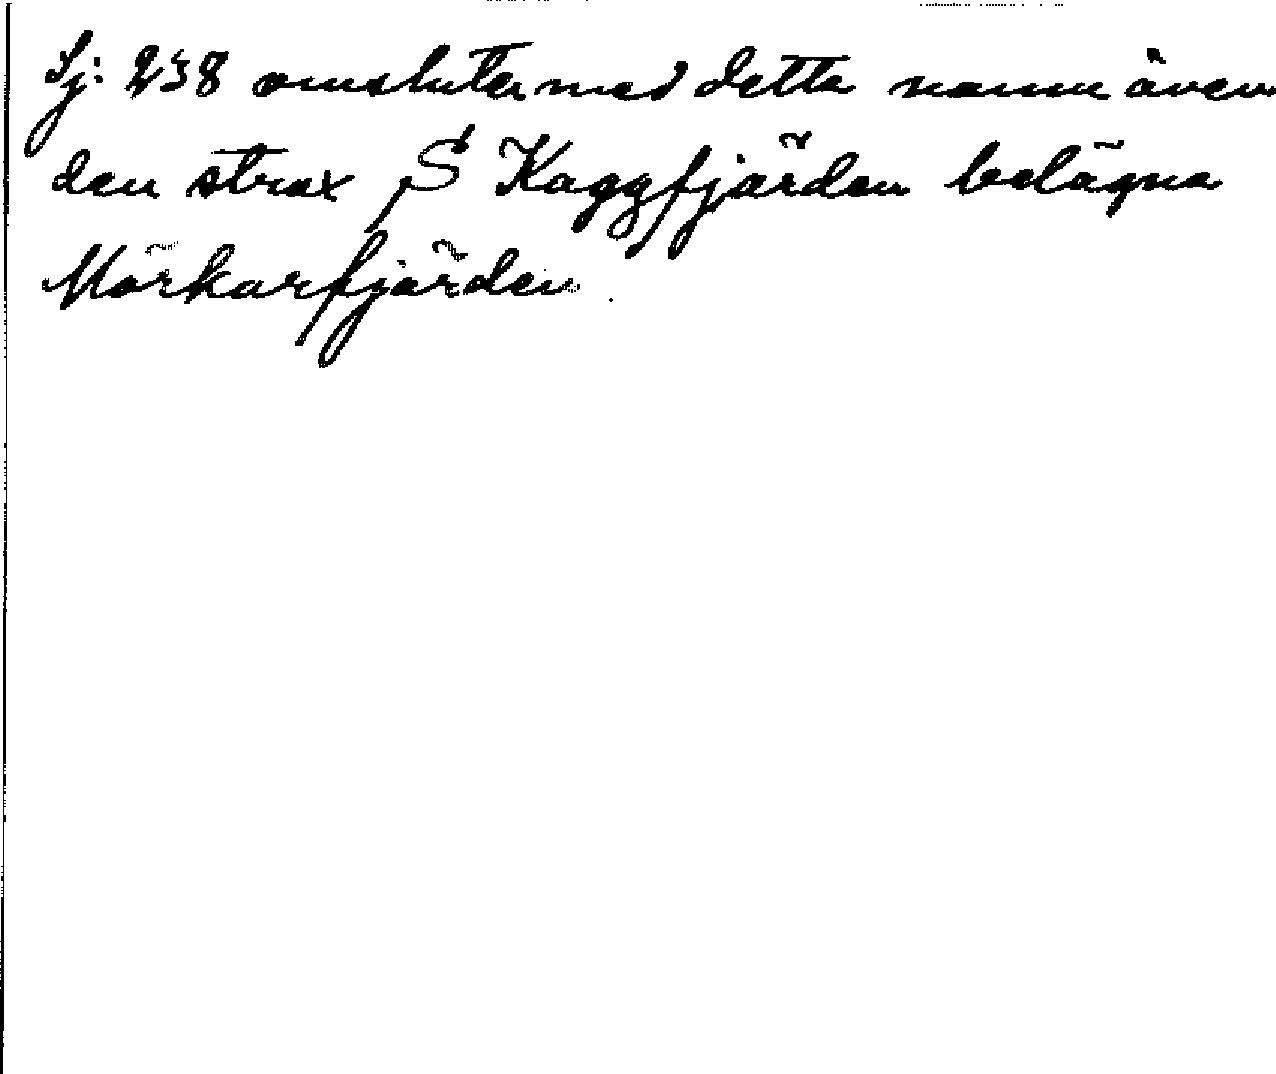 Sj: 238 omsluter med detta namn även
den strax S Kaggfjärden belägna
Mörkarfjärden.